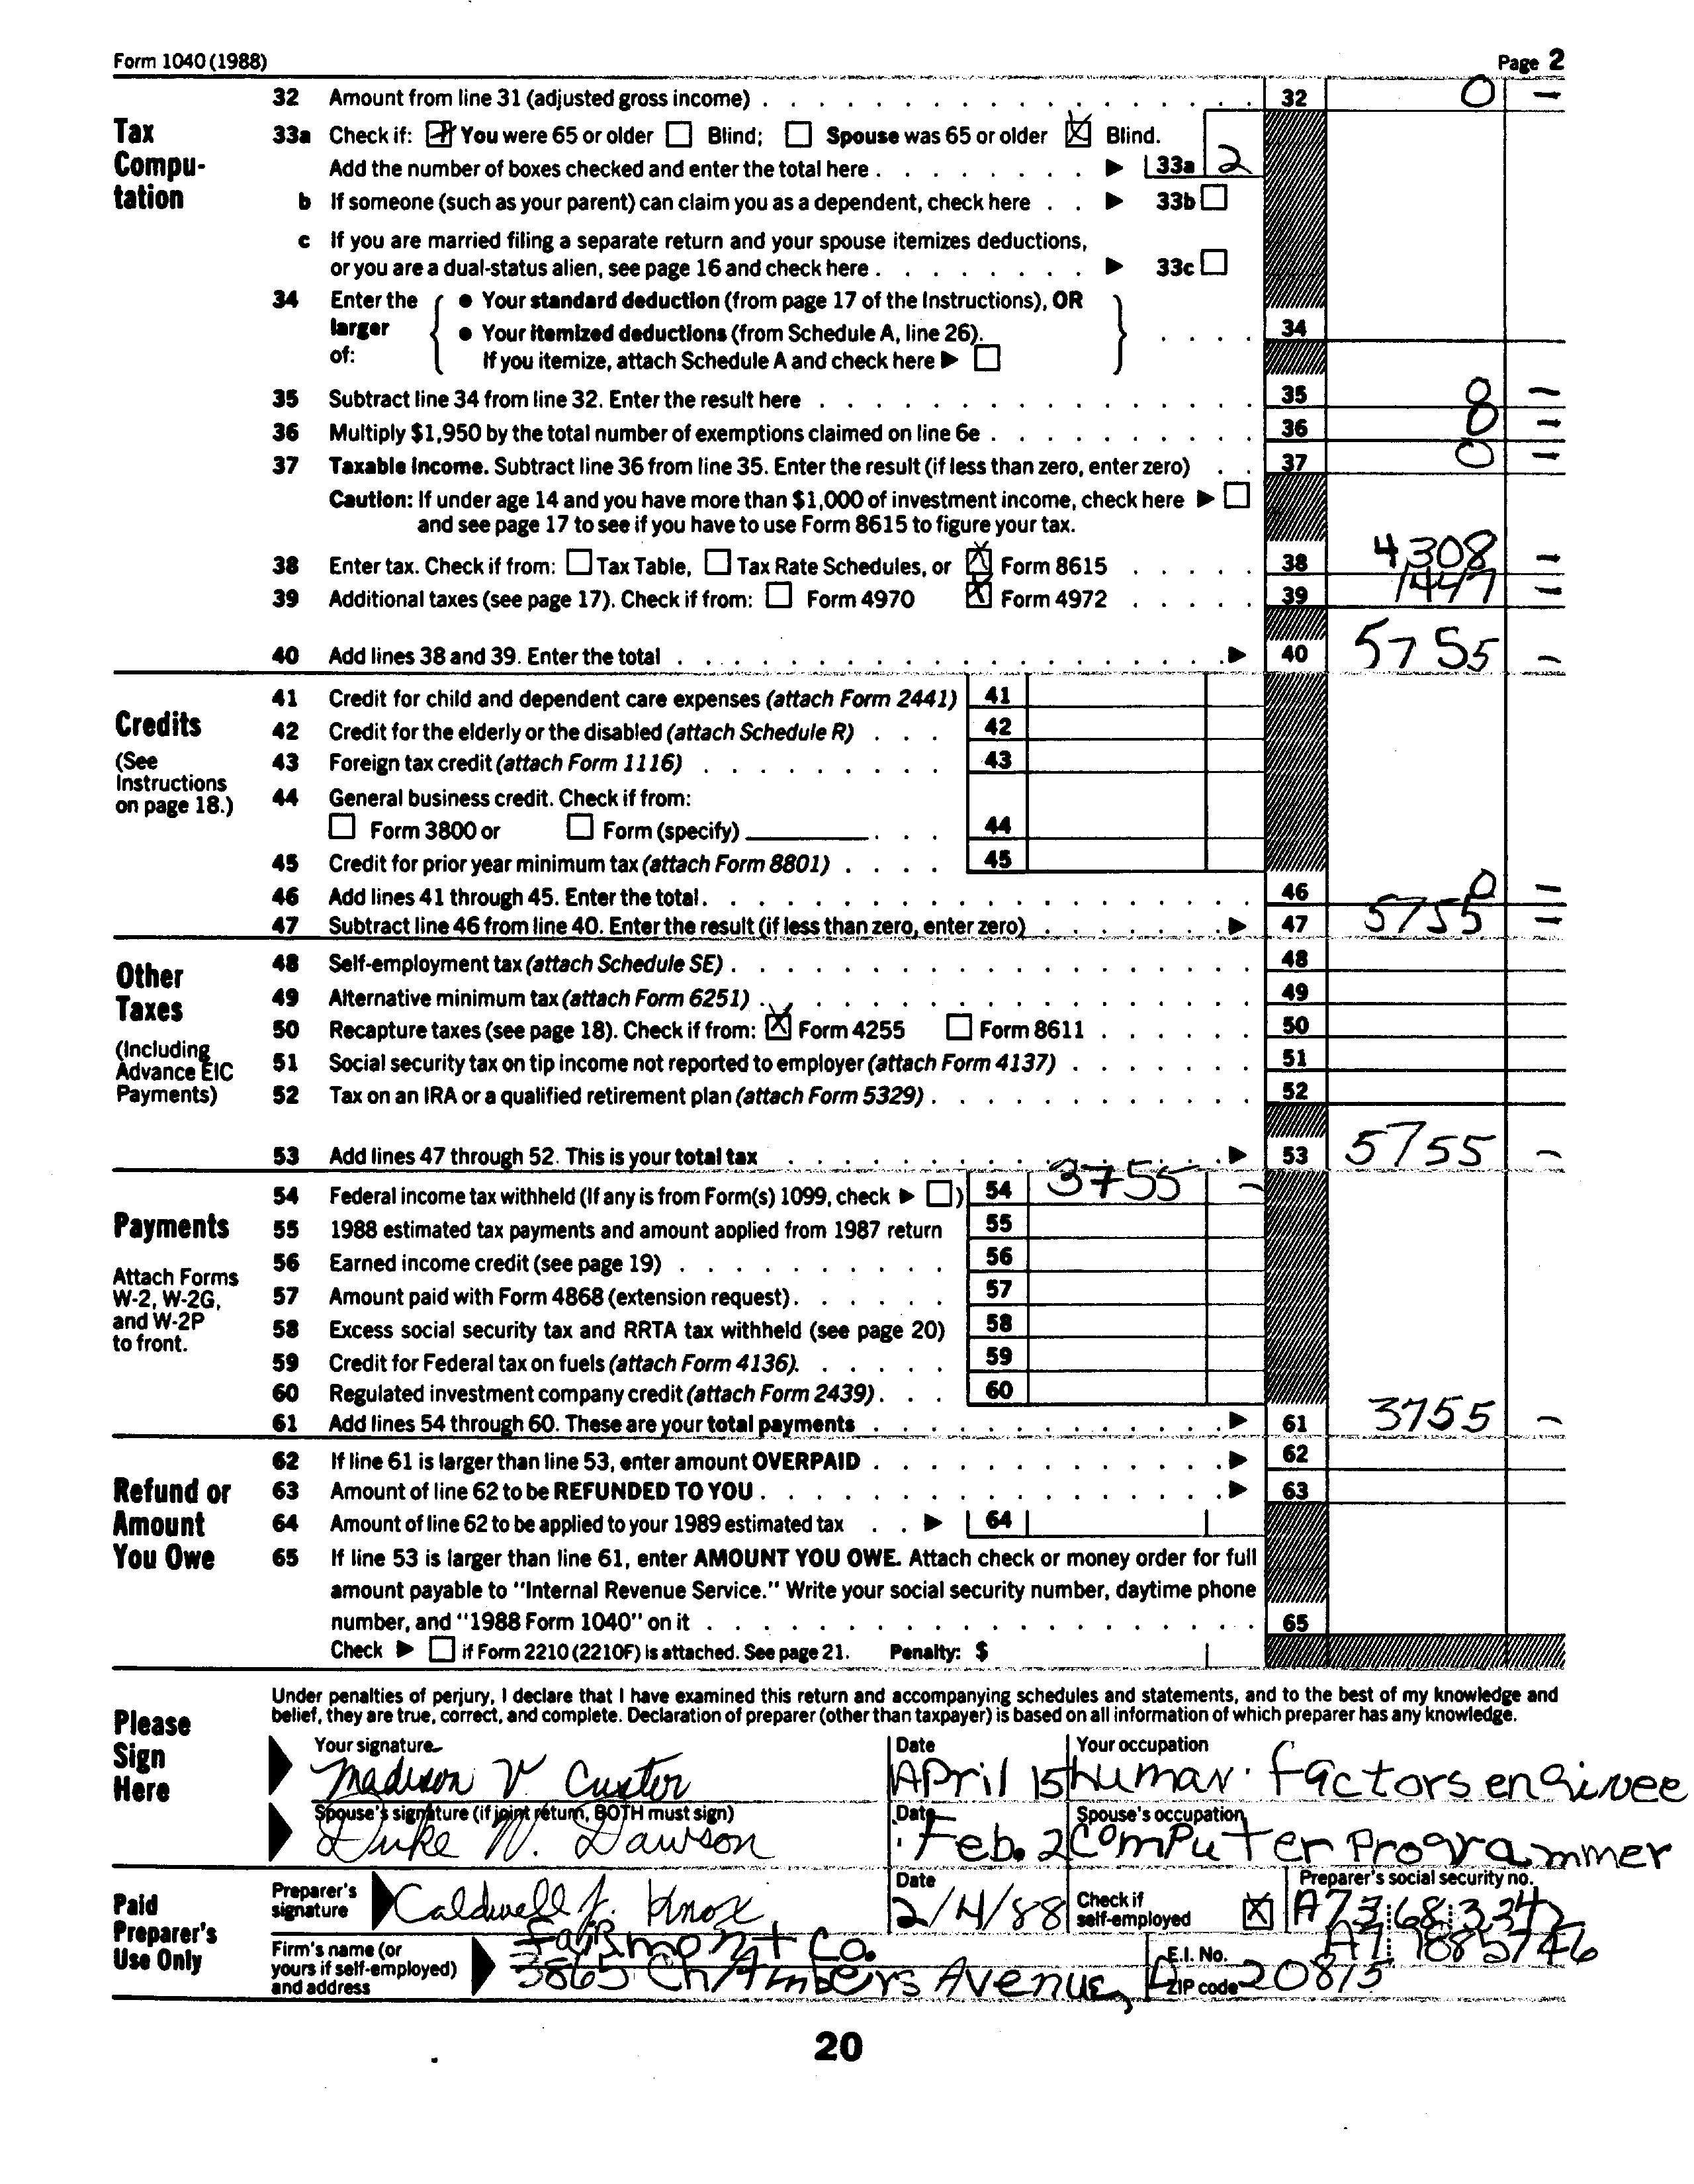 Form 1040 (1988) Page 2
32 Amount from line 31 (adjusted gross income) 32 0 –
Tax Compu- tation
33a Check if: You were 65 or older Blind; Spouse was 65 or older Blind.
Add the number of boxes checked and enter the total here 33a 2
b If someone (such as your parent) can claim you as a dependent, check here 33b
c If you are married filing a separate return and your spouse itemizes deductions,
or you are a dual-status alien, see page 16 and check here 33c
34 Enter the larger of: • Your standard deduction (from page 17 of the Instructions), OR
• Your itemized deductions (from Schedule A, line 26). 34
If you itemize, attach Schedule A and check here
35 Subtract line 34 from line 32. Enter the result here 35 0 –
36 Multiply $1,950 by the total number of exemptions claimed on line 6e 36 0 –
37 Taxable income. Subtract line 36 from line 35. Enter the result (if less than zero, enter zero) 37 0 –
Caution: If under age 14 and you have more than $1,000 of investment income, check here
and see page 17 to see if you have to use Form 8615 to figure your tax.
38 Enter tax. Check if from: Tax Table, Tax Rate Schedules, or Form 8615 38 4308 –
39 Additional taxes (see page 17). Check if from: Form 4970 Form 4972 39 1447 –
40 Add lines 38 and 39. Enter the total 40 5755 –
Credits
(See Instructions on page 18.)
41 Credit for child and dependent care expenses (attach Form 2441) 41
42 Credit for the elderly or the disabled (attach Schedule R) 42
43 Foreign tax credit (attach Form 1116) 43
44 General business credit. Check if from:
Form 3800 or Form (specify) 44
45 Credit for prior year minimum tax (attach Form 8801) 45
46 Add lines 41 through 45. Enter the total 46 0 –
47 Subtract line 46 from line 40. Enter the result (if less than zero, enter zero) 47 5755 –
Other Taxes
(Including Advance EIC Payments)
48 Self-employment tax (attach Schedule SE) 48
49 Alternative minimum tax (attach Form 6251) 49
50 Recapture taxes (see page 18). Check if from: Form 4255 Form 8611 50
51 Social security tax on tip income not reported to employer (attach Form 4137) 51
52 Tax on an IRA or a qualified retirement plan (attach Form 5329) 52
53 Add lines 47 through 52. This is your total tax 53 5755 –
Payments
Attach Forms W-2, W-2G, and W-2P to front.
54 Federal income tax withheld (If any is from Form(s) 1099, check ) 54 3755 –
55 1988 estimated tax payments and amount applied from 1987 return 55
56 Earned income credit (see page 19) 56
57 Amount paid with Form 4868 (extension request) 57
58 Excess social security tax and RRTA tax withheld (see page 20) 58
59 Credit for Federal tax on fuels (attach Form 4136). 59
60 Regulated investment company credit (attach Form 2439) 60
61 Add lines 54 through 60. These are your total payments 61 3755 –
Refund or Amount You Owe
62 If line 61 is larger than line 53, enter amount OVERPAID 62
63 Amount of line 62 to be REFUNDED TO YOU 63
64 Amount of line 62 to be applied to your 1989 estimated tax 64
65 If line 53 is larger than line 61, enter AMOUNT YOU OWE. Attach check or money order for full
amount payable to "Internal Revenue Service." Write your social security number, daytime phone
number, and "1988 Form 1040" on it 65
Check if Form 2210 (2210F) is attached. See page 21. Penalty: $
Please Sign Here
Under penalties of perjury, I declare that I have examined this return and accompanying schedules and statements, and to the best of my knowledge and
belief, they are true, correct, and complete. Declaration of preparer (other than taxpayer) is based on all information of which preparer has any knowledge.
Your signature Date Your occupation
Madison V. Custer April 15 human factors enginee
Spouse's signature (if joint return, BOTH must sign) Date Spouse's occupation
Duke W. Dawson Feb. 2 computer Programmer
Paid Preparer's Use Only
Preparer's signature Date Check if self-employed Preparer's social security no.
Caldwell J. Knox 2/4/88 A73 68 3342
Firm's name (or yours if self-employed) and address E.I. No. ZIP code
Fairmont Co. A7 7885746
3865 Chambers Avenue, 20815
20